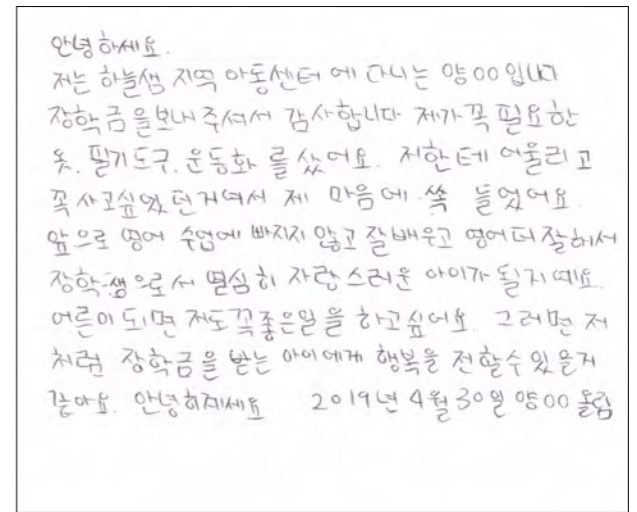 안녕하세요.
저는 하늘샘 지역 아동센터 에 다니는 양OO입니다
장학금을보내 주셔서 감사합니다 제가꼭 필요한
옷, 필기도구, 운동화 를 샀어요. 저한테 어울리고
꼭 사고싶었던거여서 제 마음에 쏙 들었어요.
앞으로 영어 수업에 빠지지 않고 잘배우고 영어더잘해서
장학생으로서 열심히 자랑스러운 아이가 될거예요.
어른이 되면 저도꼭좋은일을 하고싶어요. 그러면 저
처럼 장학금을 받는 아이에게 행복을 전할수있을거
같아요. 안녕히계세요 2019년 4월 30일 양OO 올림